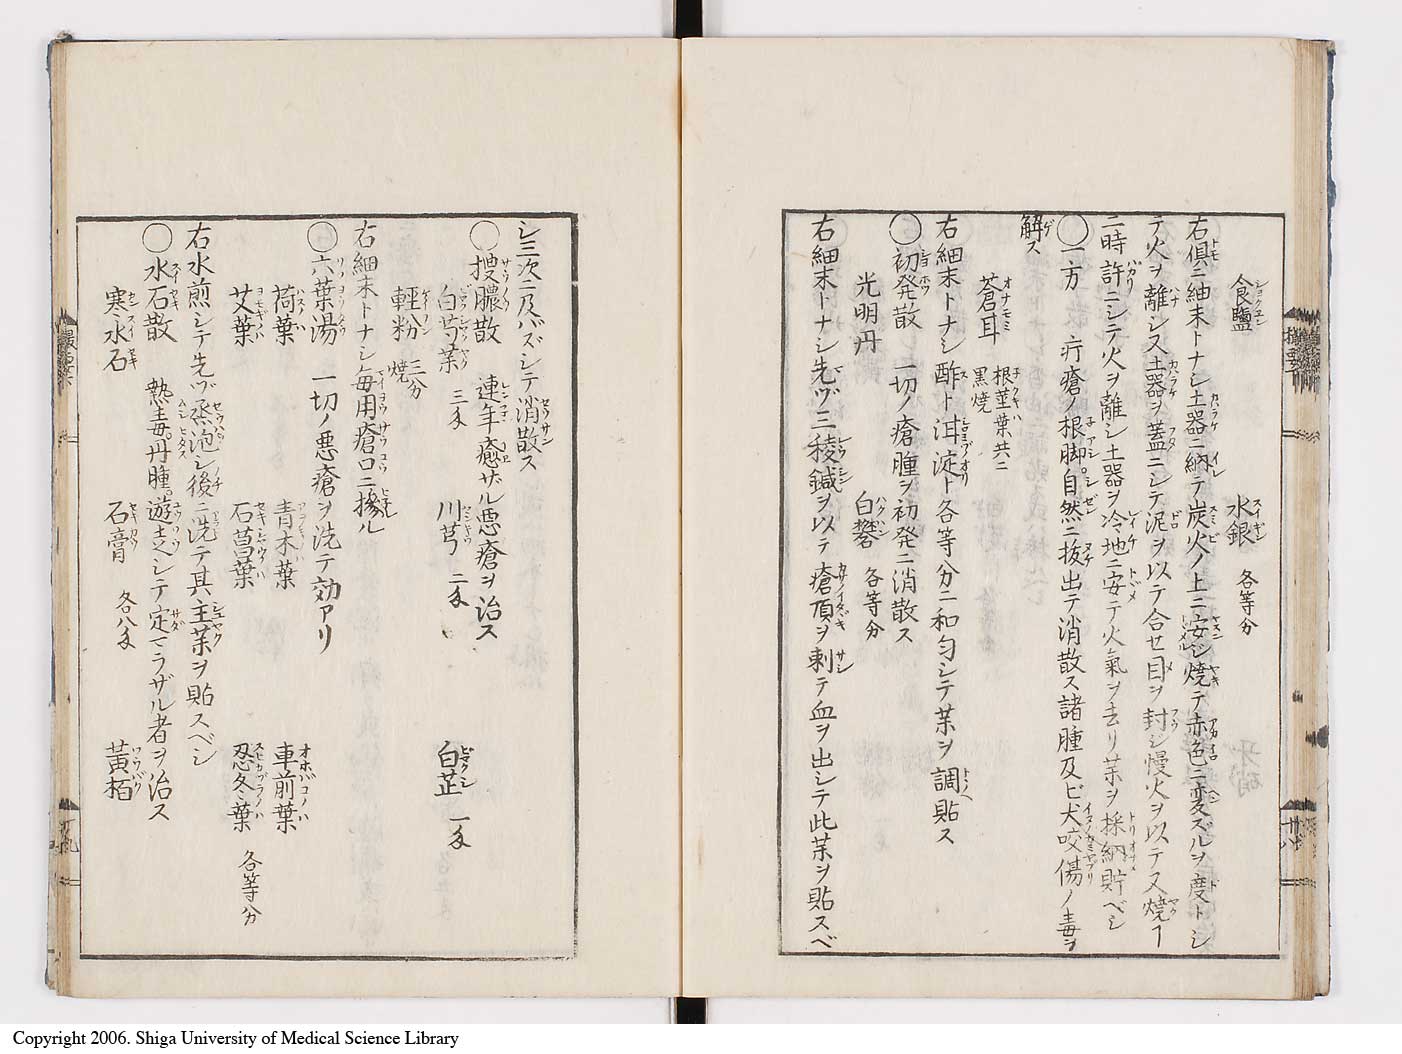 食鹽 水銀 各等分
右倶ニ細末トナシ土器ニ納テ炭火ノ上ニ安シ焼テ赤色ニ変ズルヲ度トシ
テ火ヲ離シ又土器ヲ蓋ニシテ泥ヲ以テ合セ目ヲ封ジ慢火ヲ以テ又焼ー
二時許ニシテ火ヲ離シ土器ヲ冷地ニ安テ火氣ヲ去リ茉ヲ採納貯ベシ
〇一方 疔瘡ノ根脚自然ニ抜出テ消散ス諸腫及ビ犬咬傷ノ毒ヲ
解ス
蒼耳 根莖葉共ニ黒焼
右細末トナシ酢ト洱淀ト各等分ニ和匀シテ茉ヲ調貼ス
〇初発散 一切ノ瘡腫ヲ初発ニ消散ス
光明丹 白礬 各等分
右細末トナシ先ヅ三稜鍼ヲ以テ瘡頂ヲ刺テ血ヲ出シテ此茉ヲ貼スベ
シ三次ニ及バズシテ消散ス
〇搜膿散 連年癒ザル悪瘡ヲ治ス
白芍茉 三匁 川芎 二匁 白芷 一匁
輕粉 三分 焼
右細末トナシ毎用瘡口ニ摻ル
〇六葉湯 一切ノ悪瘡ヲ洗テ効アリ
荷葉 青木葉 車前葉
艾葉 石菖葉 忍冬葉 各等分
右水煎シテ先ヅ蒸泡シ後ニ洗テ其主茉ヲ貼スベシ
〇水石散 熱毒丹腫遊走シテ定マラザル者ヲ治ス
寒水石 石膏 各八匁 黃栢
十八
Copyright 2006. Shiga University of Medical Science Library